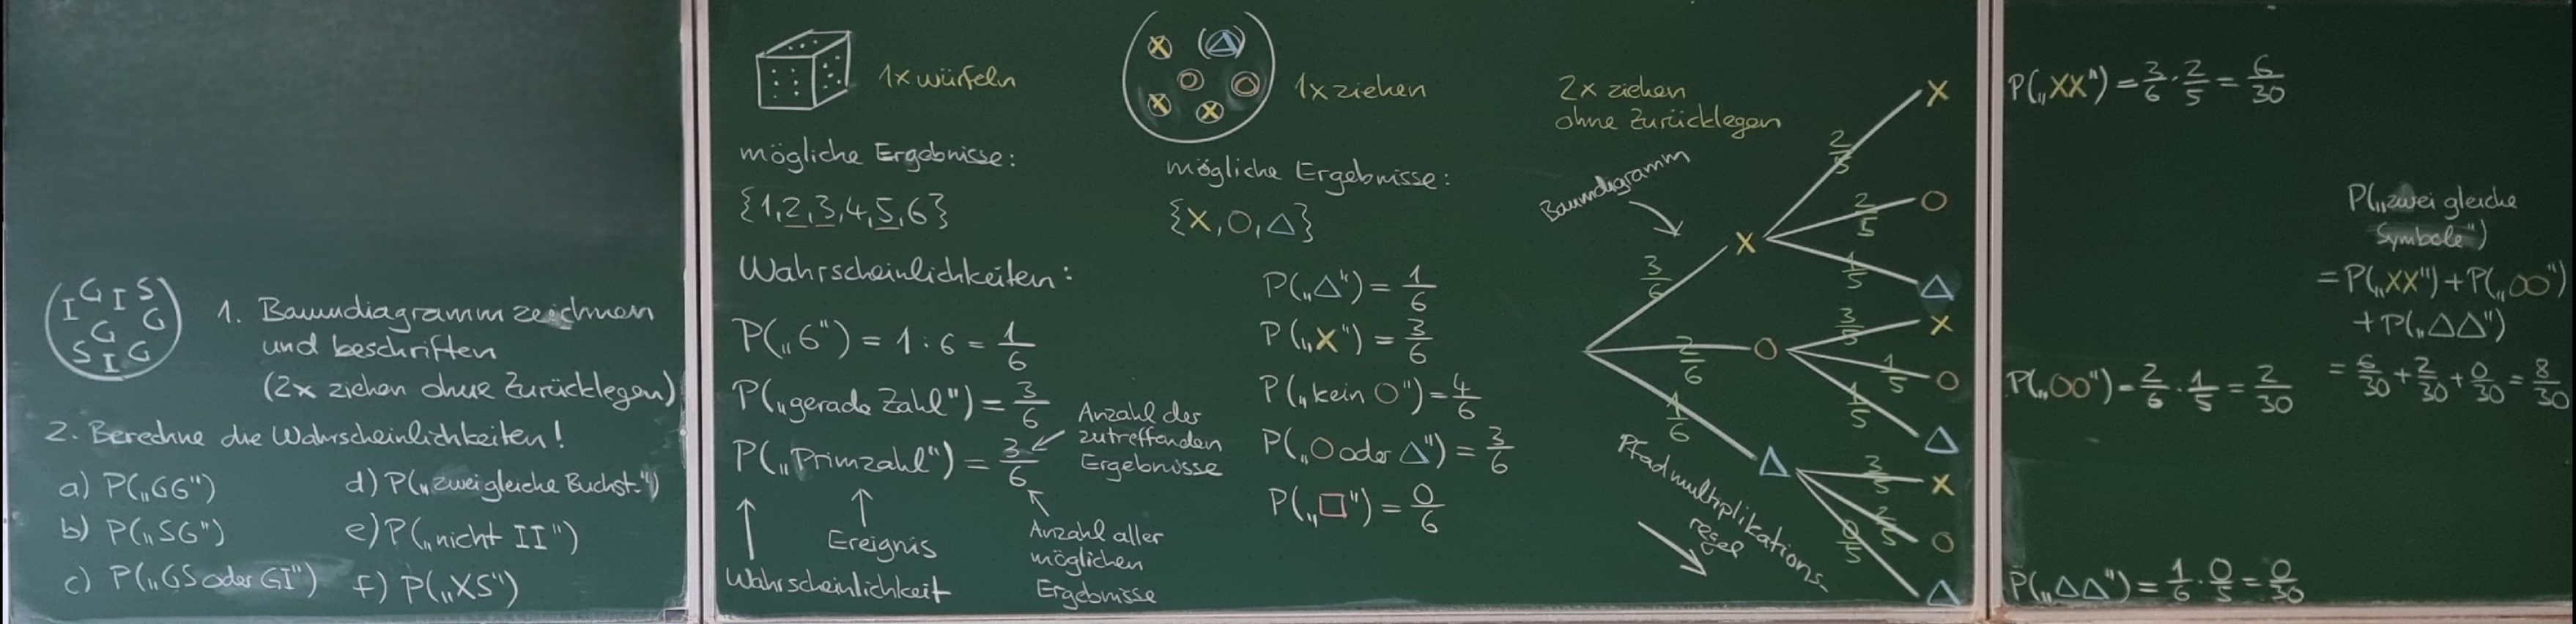 I G I S
G G
S I G
1. Baumdiagramm zeichnen
und beschriften
(2x ziehen ohne Zurücklegen)
2. Berechne die Wahrscheinlichkeiten!
a) P(„GG“)
b) P(„SG“)
c) P(„GS oder GI“)
d) P(„zwei gleiche Buchst.“)
e) P(„nicht II“)
f) P(„XS“)
1x würfeln
mögliche Ergebnisse:
{1,2,3,4,5,6}
Wahrscheinlichkeiten:
P(„6“) = 1 : 6 = 1/6
P(„gerade Zahl“) = 3/6
P(„Primzahl“) = 3/6
Anzahl der
zutreffenden
Ergebnisse
Wahrscheinlichkeit
Ereignis
Anzahl aller
möglichen
Ergebnisse
X △
O O
X X
1x ziehen
mögliche Ergebnisse:
{X, O, △}
P(„△“) = 1/6
P(„X“) = 3/6
P(„kein O“) = 4/6
P(„O oder △“) = 3/6
P(„□“) = 0/6
2x ziehen
ohne Zurücklegen
Baumdiagramm
3/6 X
2/5 X
2/5 O
1/5 △
2/6 O
3/5 X
1/5 O
1/5 △
1/6 △
3/5 X
2/5 O
0/5 △
Pfadmultiplikations-
regel
P(„XX“) = 3/6 · 2/5 = 6/30
P(„OO“) = 2/6 · 1/5 = 2/30
P(„△△“) = 1/6 · 0/5 = 0/30
P(„zwei gleiche
Symbole“)
= P(„XX“) + P(„OO“)
+ P(„△△“)
= 6/30 + 2/30 + 0/30 = 8/30